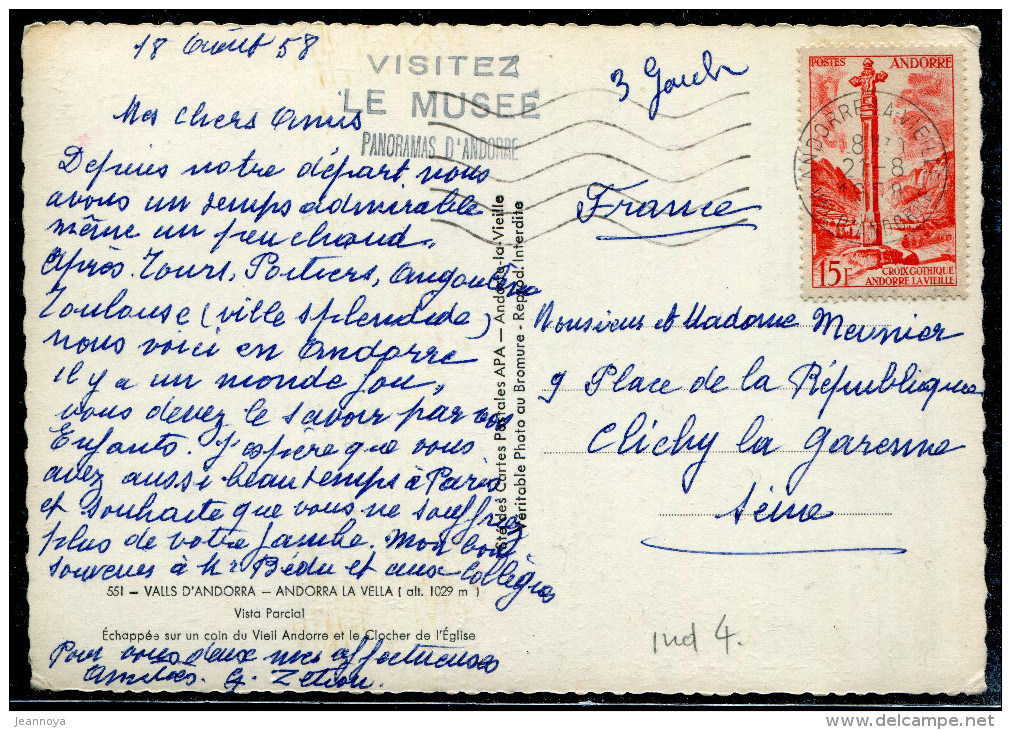 18 Août 58
VISITEZ
LE MUSEE
PANORAMAS D'ANDORRE
3 Gauche
POSTES ANDORRE
ANDORRE-LA-VIEILLE
21-8
15F
CROIX GOTHIQUE
ANDORRE LA VIEILLE
Mes chers Amis
Depuis notre départ nous
avons un temps admirable
même un peu chaud.
Après Tours, Poitiers, Angoulême
Toulouse (ville splendide)
nous voici en Andorre
il y a un monde fou,
vous devez le savoir par vos
Enfants. J'espère que vous
avez aussi beau temps à Paris
et souhaite que vous ne souffrez
plus de votre jambe. Mon bon
souvenir à Mr Bédu et aux Collègues
551 – VALLS D'ANDORRA – ANDORRA LA VELLA ( alt. 1029 m )
Vista Parcial
Échappée sur un coin du Vieil Andorre et le Clocher de l'Église
Pour vous deux mes affectueuses
Amitiés. G.
Sté des Cartes Postales APA — Andorre-la-Vieille
Véritable Photo au Bromure - Reprod. Interdite
France
Monsieur et Madame Meunier
9 Place de la République
Clichy la Garenne
Seine
ind 4.
jeannoya
delcampe.net